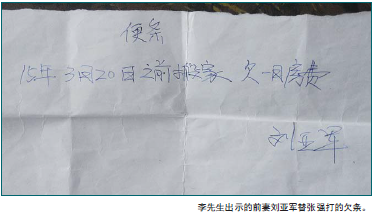 便条
15年3月20日之前搬家、欠一月房费
刘亚军
李先生出示的前妻刘亚军替张强打的欠条。